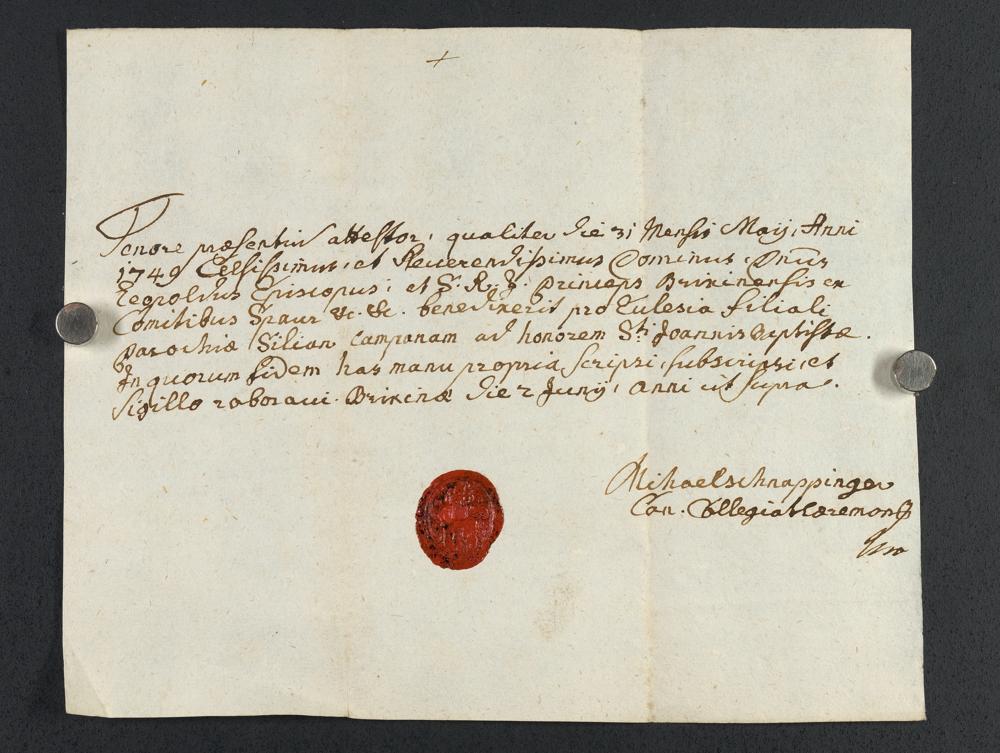 +
Tenore præsentiū attestor, qualiter die 31 Mensis Maij, Anni
1749 Celsissimus, et Reverendissimus Dominus, Dnūs
Leopoldus Episcopus, et S. R. J. Princeps Brixinensis ex
Comitibus Spaur &c. &c. benedixerit pro Eclesia filiali
Parochiæ Silian campanam ad honorem Sti Joannis Baptistæ.
In quorum fidem has manu propria scripsi, subscripsi, et
sigillo roboravi. Brixinæ die 2 Junij, anni ut supra.
Michael Schnappinger
Can. Collegiat Cæremon